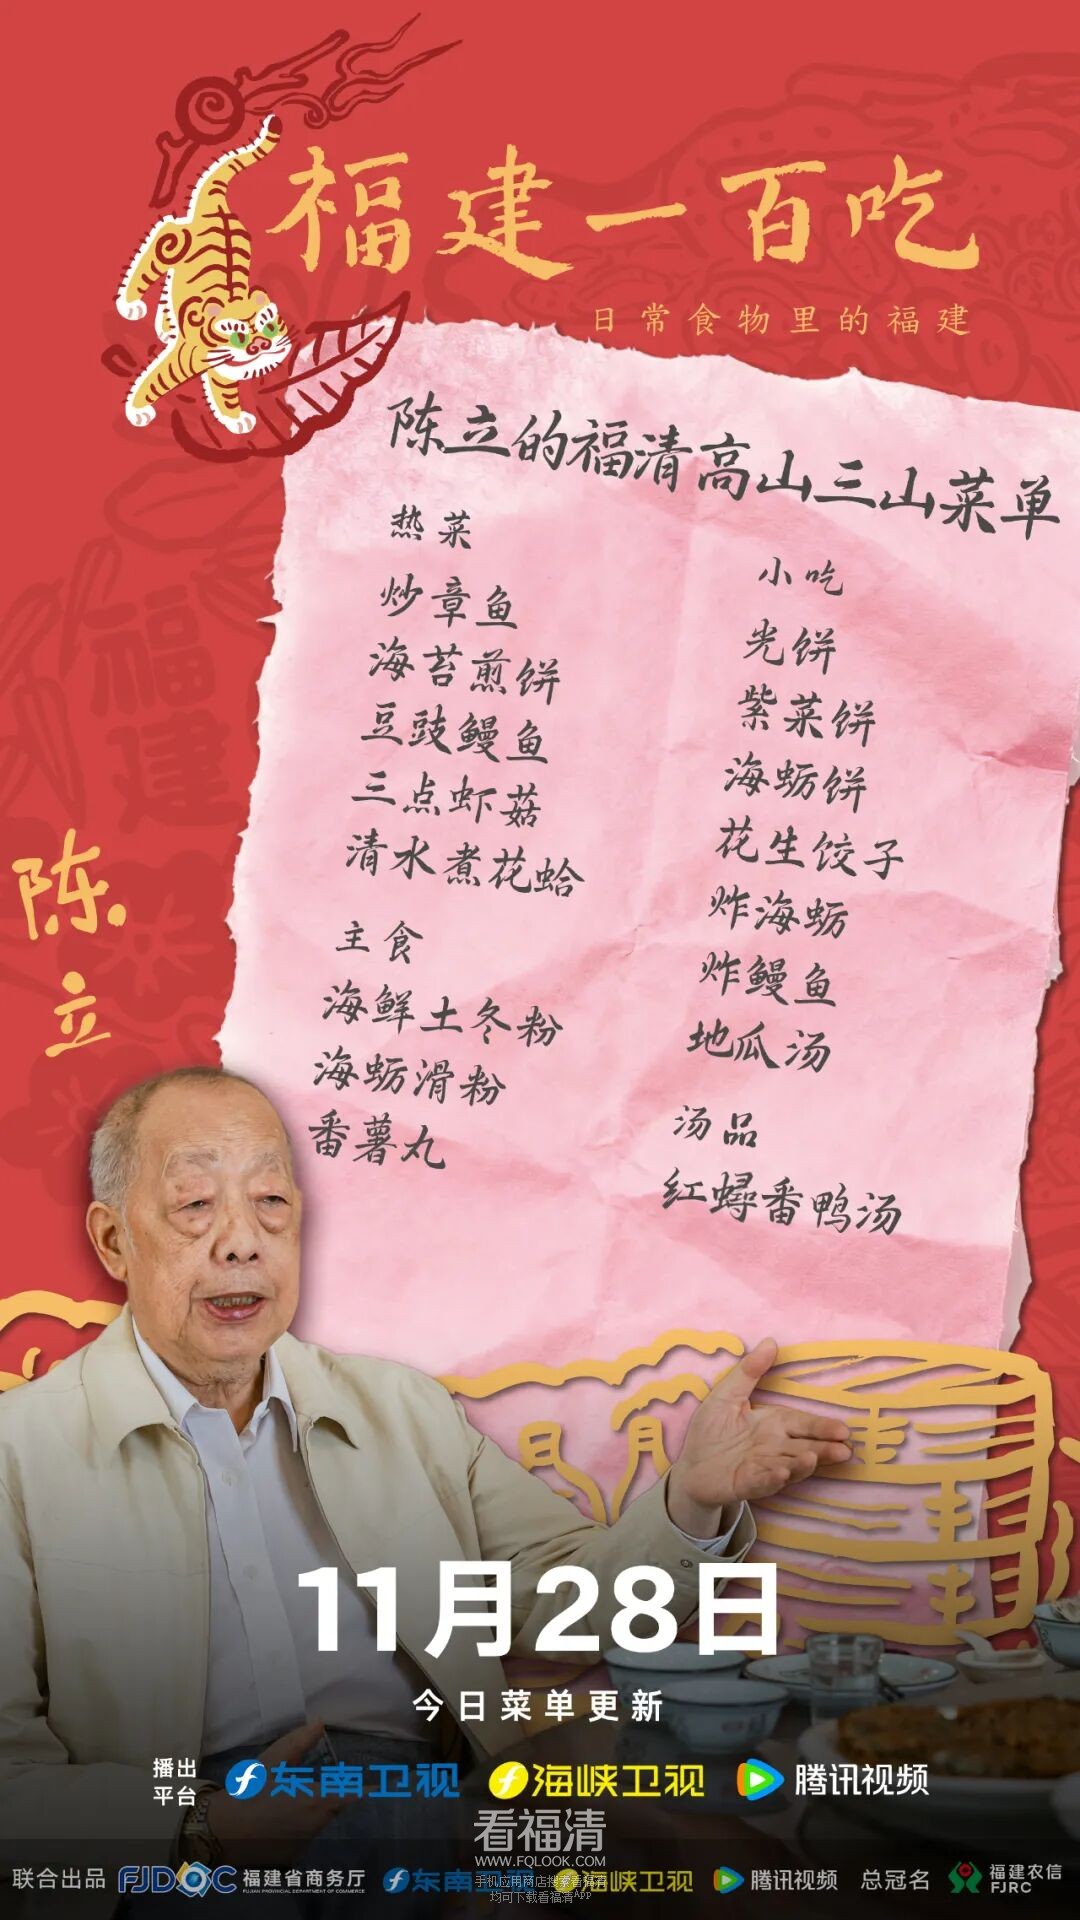 福建一百吃
日常食物里的福建
陈立的福清高山三山菜单
热菜
炒章鱼
海苔煎饼
豆豉鳗鱼
三点虾菇
清水煮花蛤
主食
海鲜土冬粉
海蛎滑粉
番薯丸
小吃
光饼
紫菜饼
海蛎饼
花生饺子
炸海蛎
炸鳗鱼
地瓜汤
汤品
红蟳番鸭汤
福建
陈立
11月28日
今日菜单更新
播出平台
东南卫视
海峡卫视
腾讯视频
看福清
WWW.FQLOOK.COM
手机应用网店搜索看福清
均可下载看福清APP
联合出品
FJDOC
福建省商务厅
FUJIAN PROVINCIAL DEPARTMENT OF COMMERCE
东南卫视
海峡卫视
腾讯视频
总冠名
福建农信
FJRC